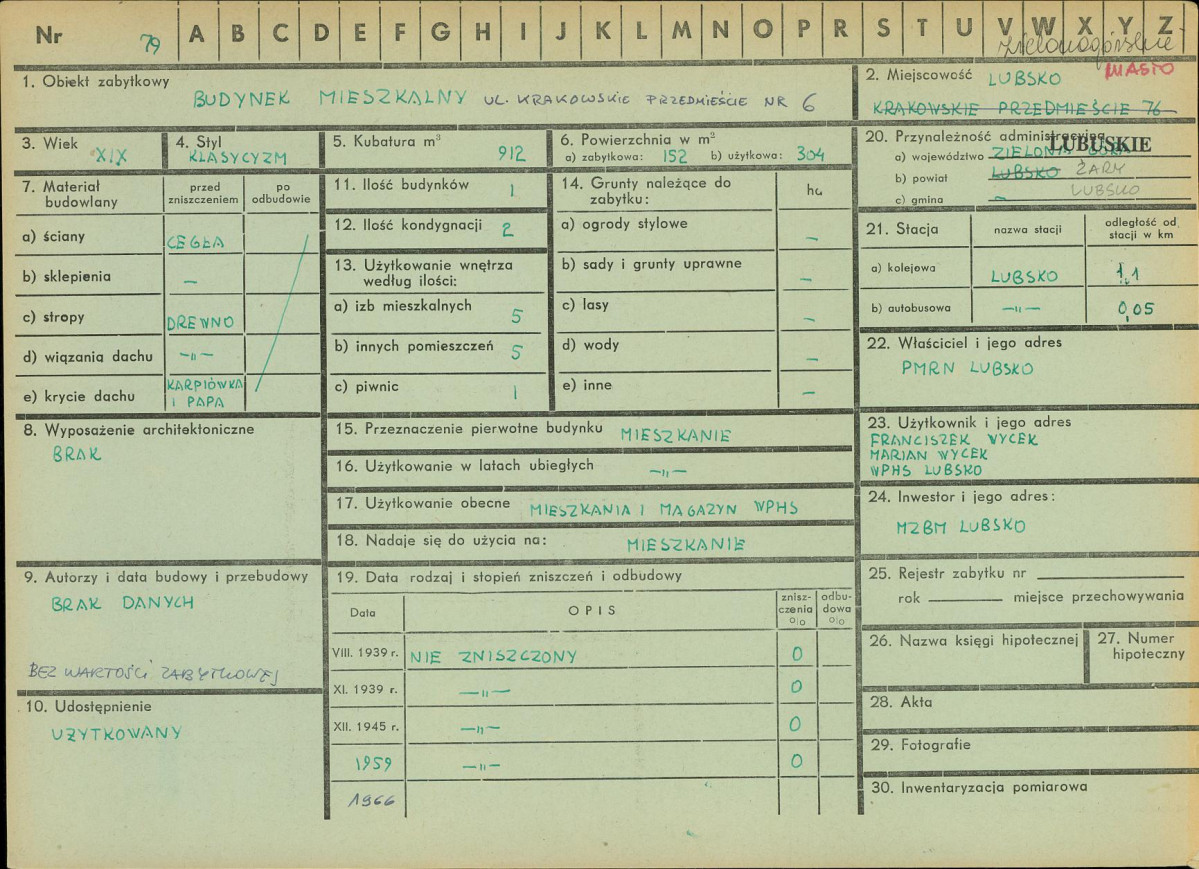 Nr 79 A B C D E F G H I J K L M N O P R S T U V W X Y Z
zielonogórskie
1. Obiekt zabytkowy
BUDYNEK MIESZKALNY UL. KRAKOWSKIE PRZEDMIEŚCIE NR 6
2. Miejscowość LUBSKO MIASTO
KRAKOWSKIE PRZEDMIEŚCIE 76
3. Wiek
XIX
4. Styl
KLASYCYZM
5. Kubatura m³
912
6. Powierzchnia w m²
a) zabytkowa: 152 b) użytkowa: 304
20. Przynależność administracyjna
a) województwo ZIELONA GÓRA LUBUSKIE
b) powiat LUBSKO ŻARY
c) gmina LUBSKO
7. Materiał budowlany
przed zniszczeniem
po odbudowie
a) ściany CEGŁA
b) sklepienia —
c) stropy DREWNO
d) wiązania dachu —„—
e) krycie dachu KARPIÓWKA
I PAPA
11. Ilość budynków 1
12. Ilość kondygnacji 2
13. Użytkowanie wnętrza
według ilości:
a) izb mieszkalnych 5
b) innych pomieszczeń 5
c) piwnic 1
14. Grunty należące do
zabytku:
ha
a) ogrody stylowe —
b) sady i grunty uprawne —
c) lasy —
d) wody —
e) inne —
21. Stacja
nazwa stacji
odległość od
stacji w km
a) kolejowa LUBSKO 1,1
b) autobusowa —„— 0,05
22. Właściciel i jego adres
PMRN LUBSKO
8. Wyposażenie architektoniczne
BRAK
15. Przeznaczenie pierwotne budynku MIESZKANIE
16. Użytkowanie w latach ubiegłych —„—
17. Użytkowanie obecne MIESZKANIA I MAGAZYN WPHS
18. Nadaje się do użycia na: MIESZKANIE
23. Użytkownik i jego adres
FRANCISZEK WYCEK
MARIAN WYCEK
WPHS LUBSKO
24. Inwestor i jego adres:
MZBM LUBSKO
9. Autorzy i data budowy i przebudowy
BRAK DANYCH
BEZ WARTOŚCI ZABYTKOWEJ
10. Udostępnienie
UŻYTKOWANY
19. Data rodzaj i stopień zniszczeń i odbudowy
Data
OPIS
znisz-
czenia
%
odbu-
dowa
%
VIII. 1939 r. NIE ZNISZCZONY 0
XI. 1939 r. —„— 0
XII. 1945 r. —„— 0
1959 —„— 0
1966
25. Rejestr zabytku nr
rok miejsce przechowywania
26. Nazwa księgi hipotecznej
27. Numer
hipoteczny
28. Akta
29. Fotografie
30. Inwentaryzacja pomiarowa